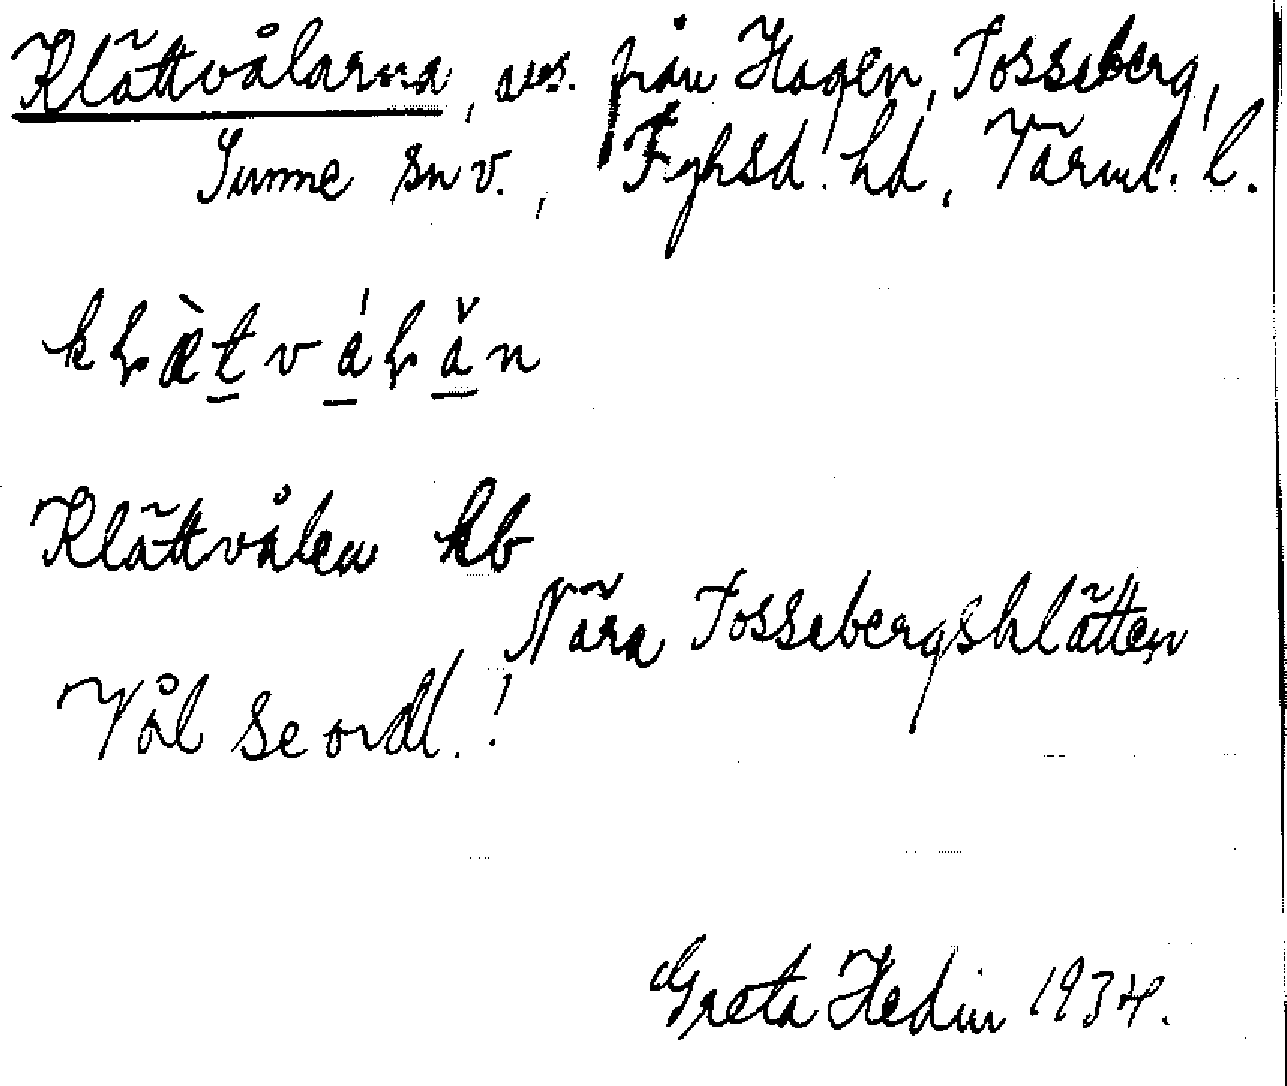 Klättvålarna, avs. från Hagen, Tosseberg,
Sunne sn v., Fryksd. hd, Värml. l.
Klättvålen kb
Nära Tossebergsklätten
Vål se ordl.!
Greta Hedin 1934.